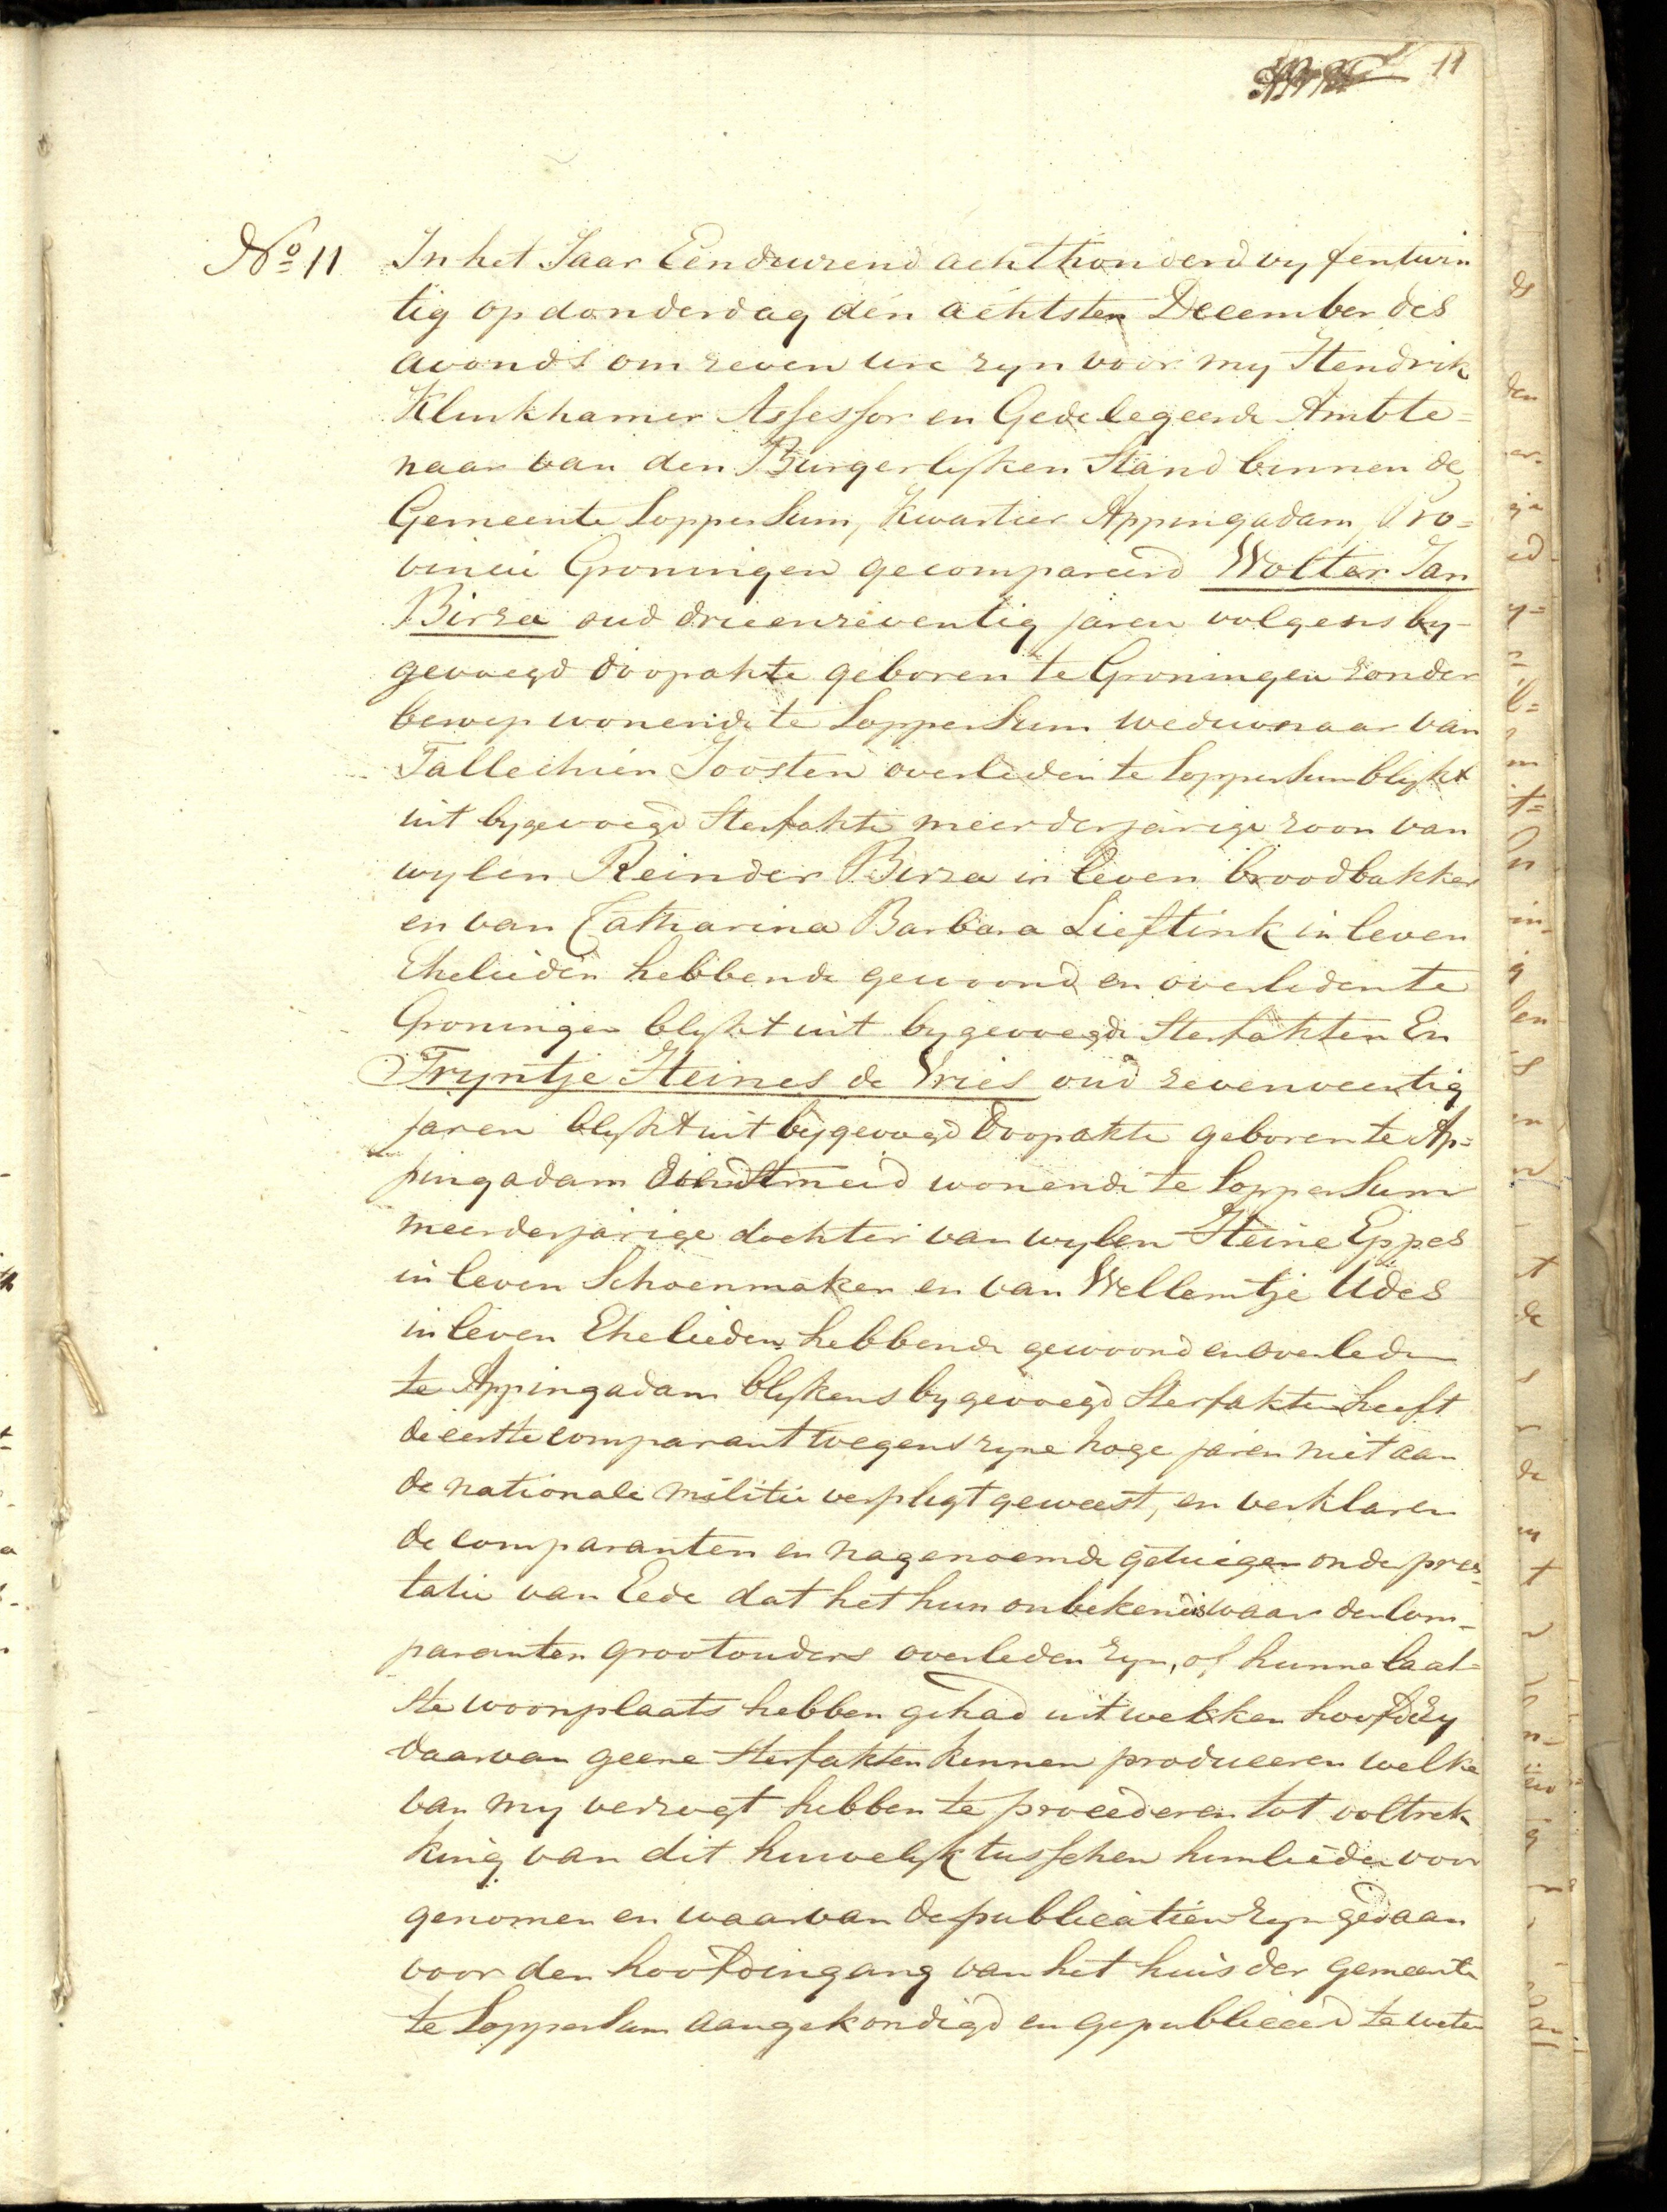 11
No 11
In het Jaar Eenduizend achthonderd vyfentwin
tig op donderdag den achtsten December des
avonds om zeven ure zyn voor my Hendrik
Klinkhamer Assessor en Gedelegeerde Ambte=
naar van den Burgerlyken Stand binnen de
Gemeente Loppersum, Kwartier Appingadam, Pro=
vincie Groningen gecompareerd Wolter Jan
Birza oud drieenzeventig jaren volgens by-
gevoegd doopakte geboren te Groningen zonder
beroep wonende te Loppersum weduwnaar van
Tallechien Joosten overleden te Loppersum blykt
uit bygevoegd Sterfakte meerderjarige zoon van
wylen Reinder Birza in leven broodbakker
en van Catharina Barbara Lieftink in leven
Ehelieden hebbende gewoond en overleden te
Groningen blykt uit bygevoegde Sterfakten En
Tryntje Heines de Vries oud zevenveertig
jaren blykt uit bygevoegd Doopakte geboren te Ap=
pingadam dienstmeid wonende te Loppersum
meerderjarige dochter van wylen Heine Eppes
in leven Schoenmaker en van Wellemtje Udes
in leven Ehelieden hebbende gewoond en overleden
te Appingadam blykens bygevoegd Sterfakten heeft
de eerste comparant wegens zyne hoge jaren niet aan
de nationale militie verpligt geweest, en verklaren
de comparanten en nagenoemde getuigen onde pres-
tatie van Eede dat het hun onbekend is waar den Com-
paranten grootouders overleden zyn, of hunne laat=
ste woonplaats hebben gehad uit welken hoofde zy
daarvan geene Sterfakten kunnen produceeren welke
van my verzogt hebben te procederen tot voltrek
king van dit huwelyk tusschen hunlieden voor
genomen en waarvan de publicatien zyn gedaan
voor den hoofdingang van het huis der gemeente
te Loppersum aangekondigd en gepubliceerd te weten